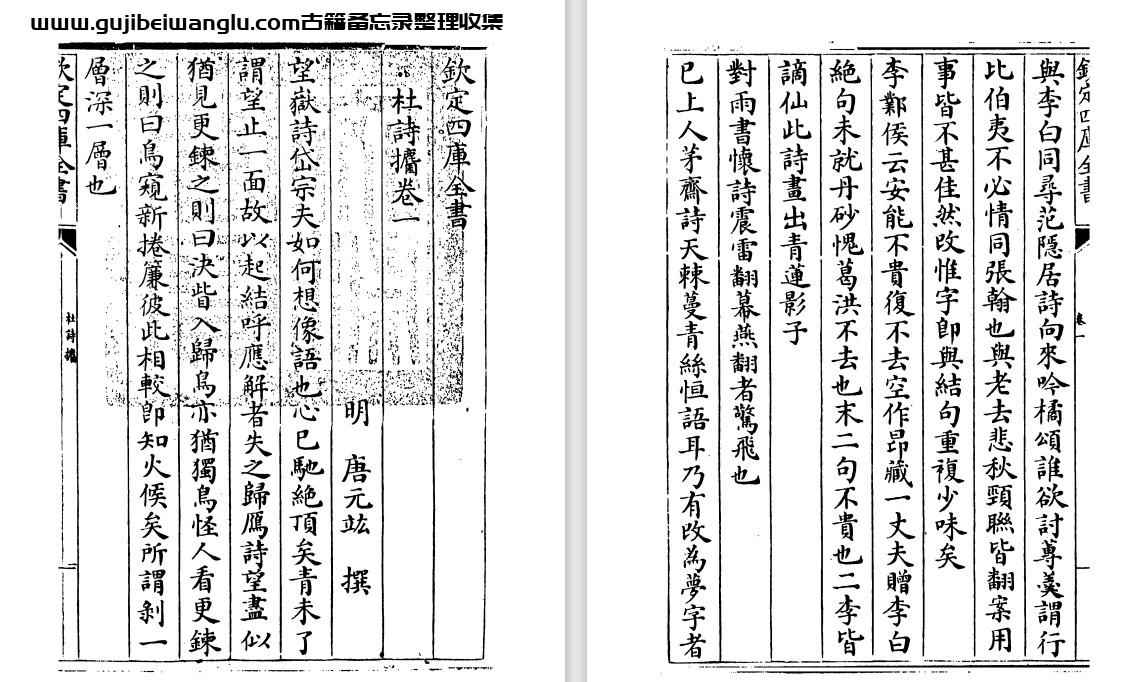 www.gujibeiwanglu.com古籍备忘录整理收集
欽定四庫全書
杜詩攟卷一
明 唐元竑 撰
望嶽詩岱宗夫如何想像語也心已馳絶頂矣青未了
謂望止一面故以起結呼應解者失之歸鴈詩望盡似
猶見更鍊之則曰決眥入歸鳥亦猶獨鳥怪人看更鍊
之則曰鳥窺新捲簾彼此相較即知火候矣所謂剝一
層深一層也
欽定四庫全書
杜詩攟
欽定四庫全書
卷一
與李白同尋范隠居詩句來吟橘頌誰欲討蓴羮謂行
比伯夷不必情同張翰也與老去悲秋頸聯皆翻案用
事皆不甚佳然改惟字即與結句重複少味矣
李鄴侯云安能不貴復不去空作昂藏一丈夫贈李白
絶句未就丹砂愧葛洪不去也末二句不貴也二李皆
謫仙此詩畫出青蓮影子
對雨書懷詩震雷翻幕燕翻者驚飛也
已上人茅齋詩天棘蔓青絲恒語耳乃有改為夢字者